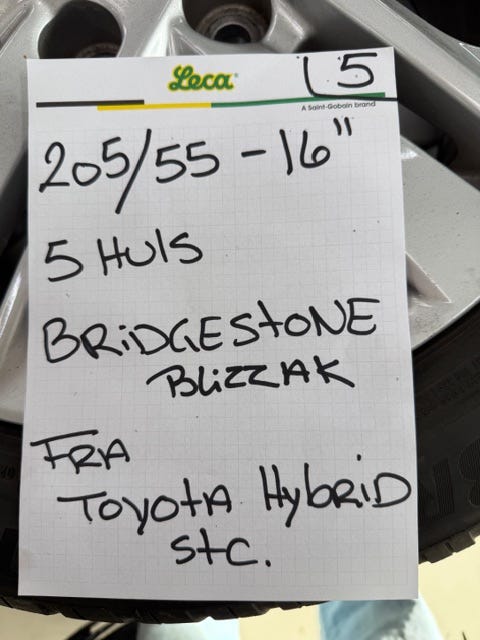 Leca
15
A Saint-Gobain brand
205/55 - 16"
5 HulS
BRiDGEStONE
BLiZZAK
FRA
TOYOtA HybRiD
Stc.